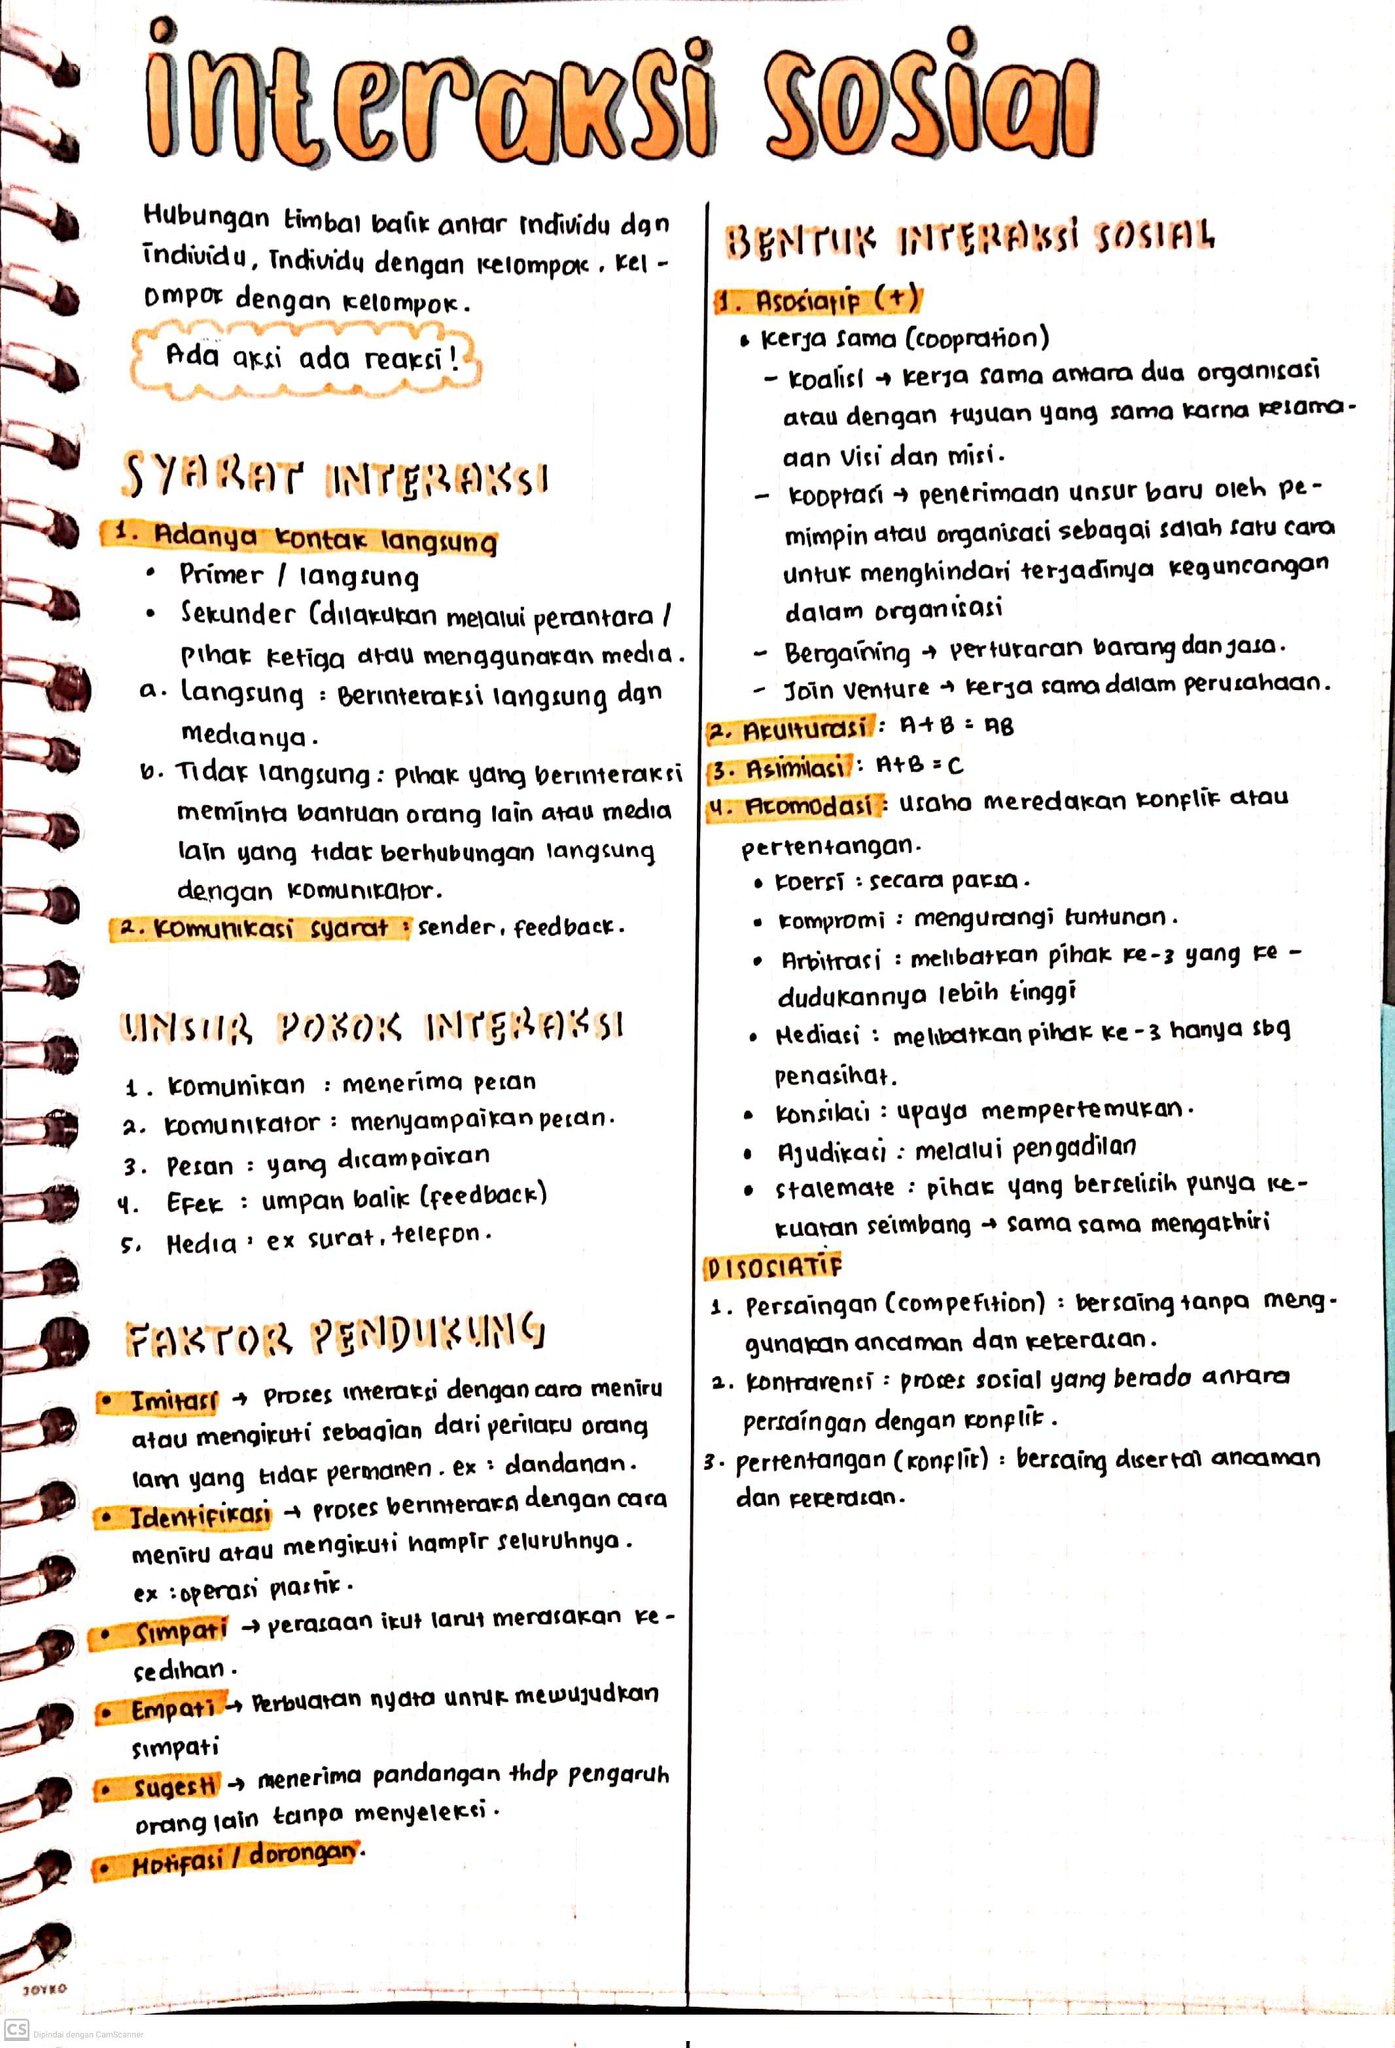 interaksi sosial
Hubungan timbal balik antar individu dgn
individu, Individu dengan kelompok, kel-
ompok dengan kelompok.
Ada aksi ada reaksi!
SYARAT INTERAKSI
1. Adanya kontak langsung
• Primer / langsung
• Sekunder (dilakukan melalui perantara /
pihak ketiga atau menggunakan media.
a. Langsung : Berinteraksi langsung dgn
medianya.
b. Tidak langsung : pihak yang berinteraksi
meminta bantuan orang lain atau media
lain yang tidak berhubungan langsung
dengan komunikator.
2. Komunikasi syarat : sender, feedback.
UNSUR POKOK INTERAKSI
1. Komunikan : menerima pesan
2. Komunikator : menyampaikan pesan.
3. Pesan : yang disampaikan
4. Efek : umpan balik (feedback)
5. Media : ex surat, telefon.
FAKTOR PENDUKUNG
• Imitasi → Proses interaksi dengan cara meniru
atau mengikuti sebagian dari perilaku orang
lain yang tidak permanen. ex : dandanan.
• Identifikasi → proses berinteraksi dengan cara
meniru atau mengikuti hampir seluruhnya.
ex : operasi plastik.
• Simpati → perasaan ikut larut merasakan ke-
sedihan.
• Empati → Perbuatan nyata untuk mewujudkan
simpati
• Sugesti → menerima pandangan thdp pengaruh
orang lain tanpa menyeleksi.
• Motifasi / dorongan.
BENTUK INTERAKSI SOSIAL
1. Asosiatif (+)
• Kerja sama (coopration)
- Koalisi → kerja sama antara dua organisasi
atau dengan tujuan yang sama karna kesama-
aan visi dan misi.
- Kooptasi → penerimaan unsur baru oleh pe-
mimpin atau organisasi sebagai salah satu cara
untuk menghindari terjadinya keguncangan
dalam organisasi
- Bergaining → perturaran barang dan jasa.
- Join venture → kerja sama dalam perusahaan.
2. Akulturasi : A+B = AB
3. Asimilasi : A+B = C
4. Akomodasi : usaha meredakan konflik atau
pertentangan.
• Koersi : secara paksa.
• Kompromi : mengurangi tuntunan.
• Arbitrasi : melibatkan pihak ke-3 yang ke-
dudukannya lebih tinggi
• Mediasi : melibatkan pihak ke-3 hanya sbg
penasihat.
• Konsilasi : upaya mempertemukan.
• Ajudikasi : melalui pengadilan
• Stalemate : pihak yang berselisih punya ke-
kuatan seimbang → sama sama mengakhiri
DISOSIATIF
1. Persaingan (competition) : bersaing tanpa meng-
gunakan ancaman dan kekerasan.
2. Kontravensi : proses sosial yang berada antara
persaingan dengan konflik.
3. pertentangan (konflik) : bersaing disertai ancaman
dan kekerasan.
JOYKO
CS Dipindai dengan CamScanner